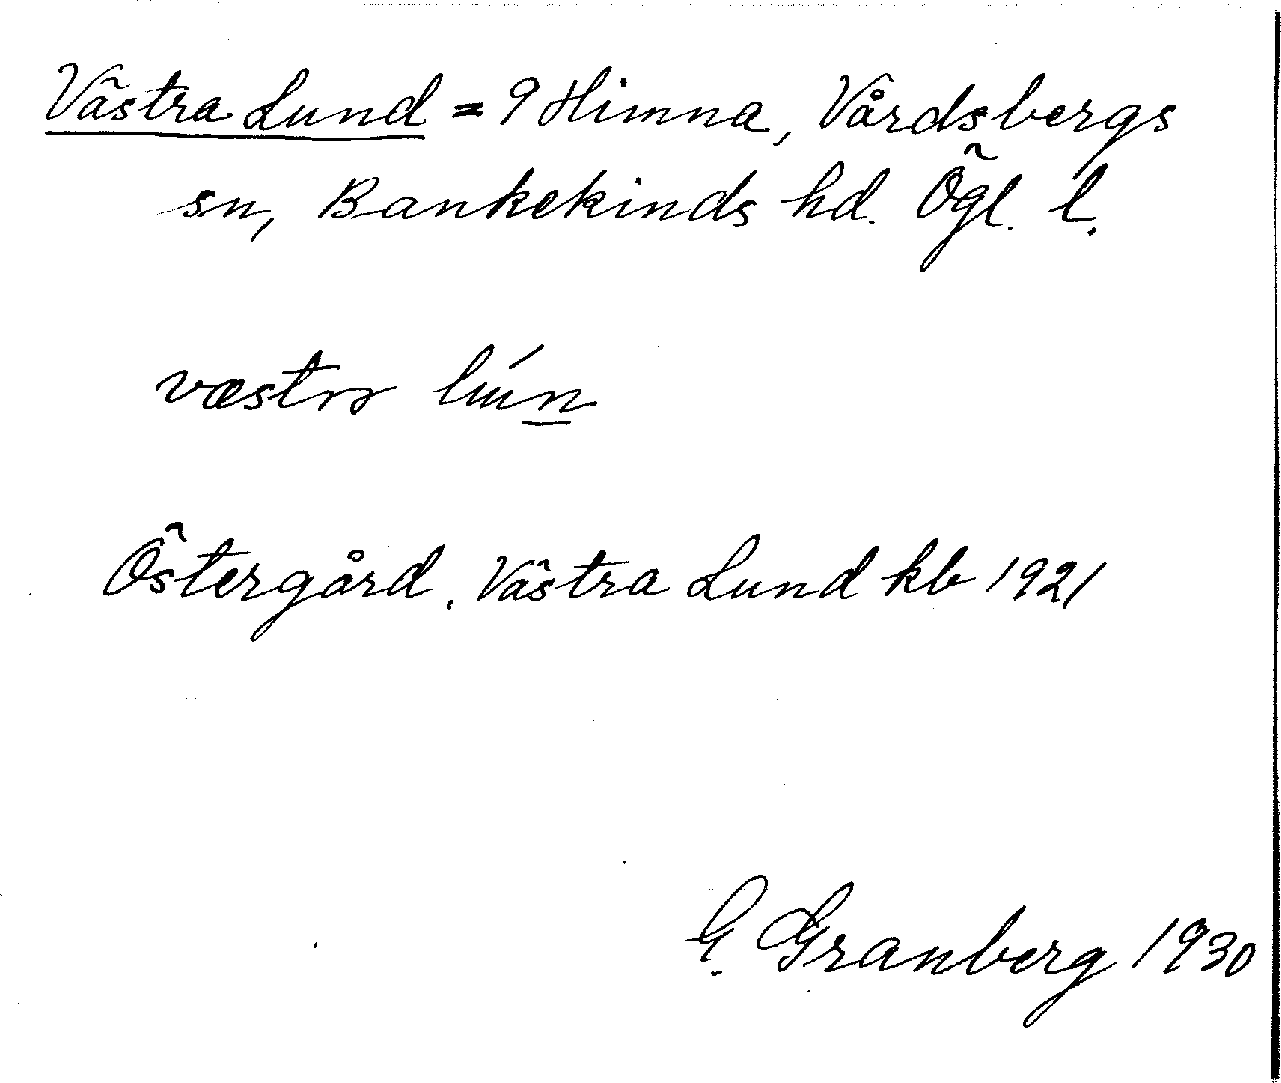 Västra Lund = 9 Himna, Vårdsbergs
sn, Bankekinds hd. Ögl. l.
væstra
Östergård. Västra Lund kb 1921
G. Granberg 1930